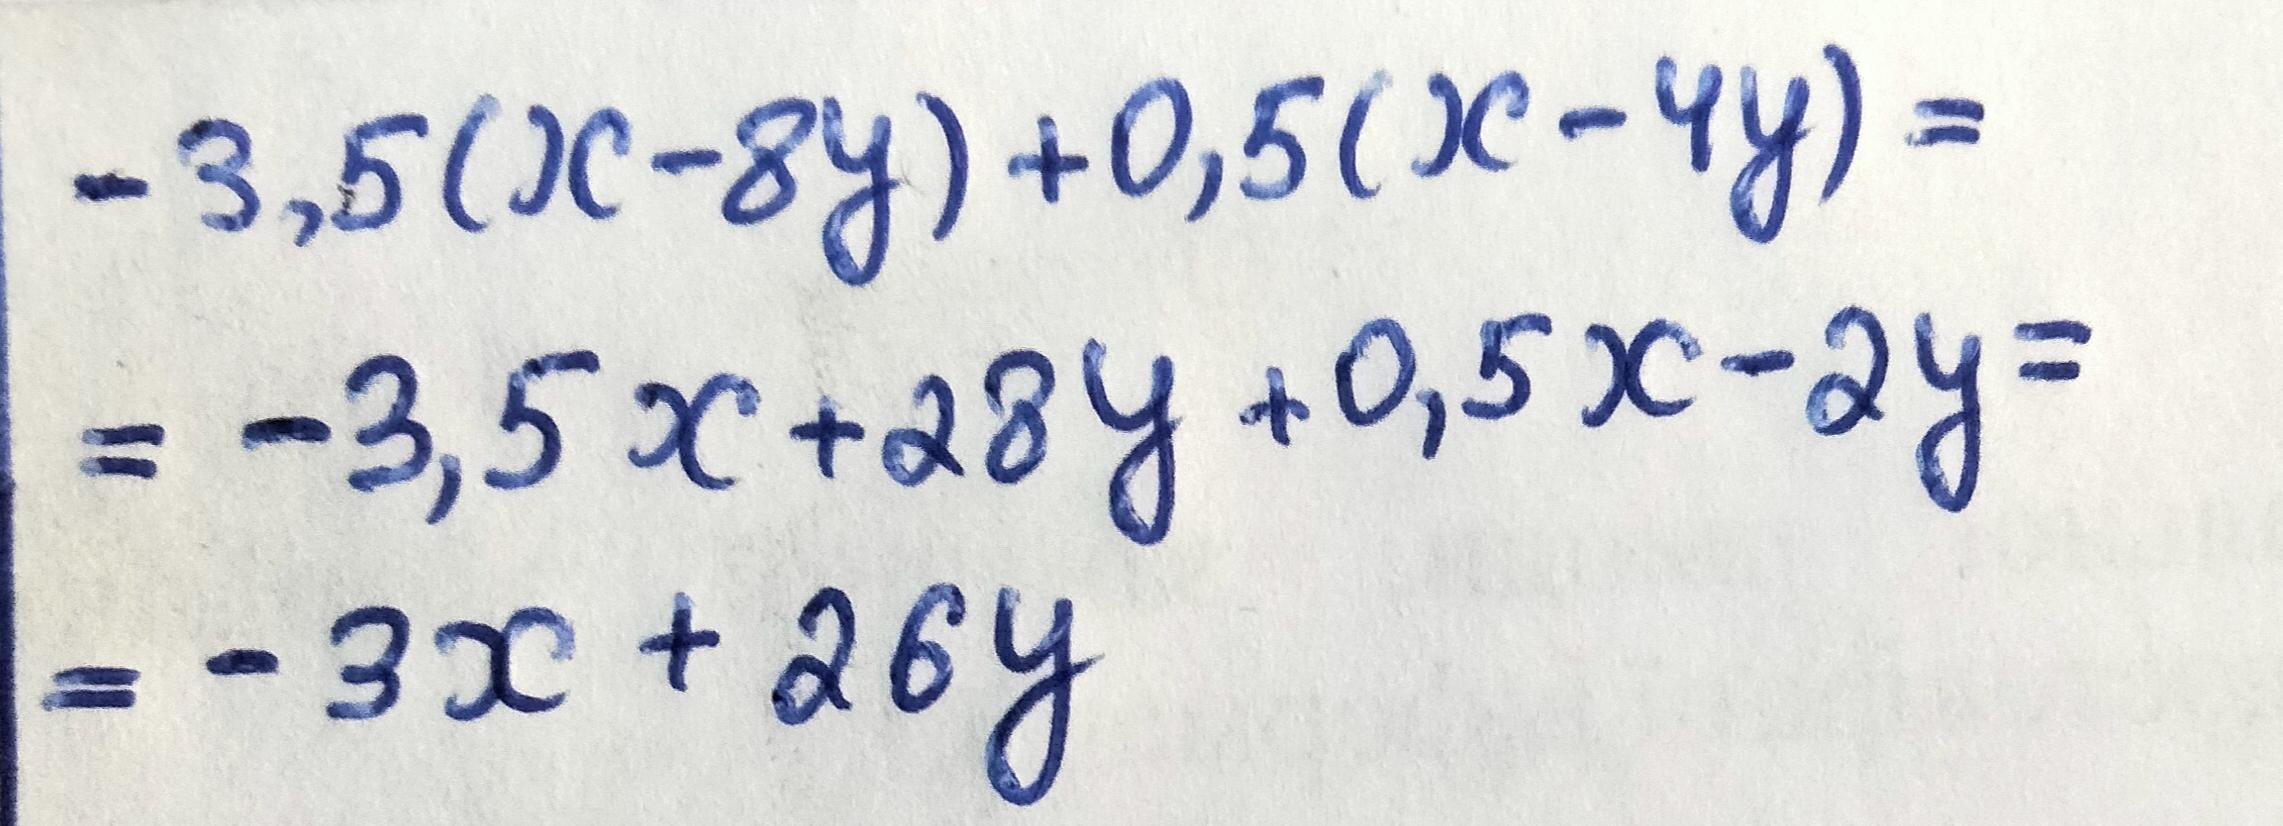 -3,5(x-8y)+0,5(x-4y)=
= -3,5x+28y+0,5x-2y=
= -3x + 26y